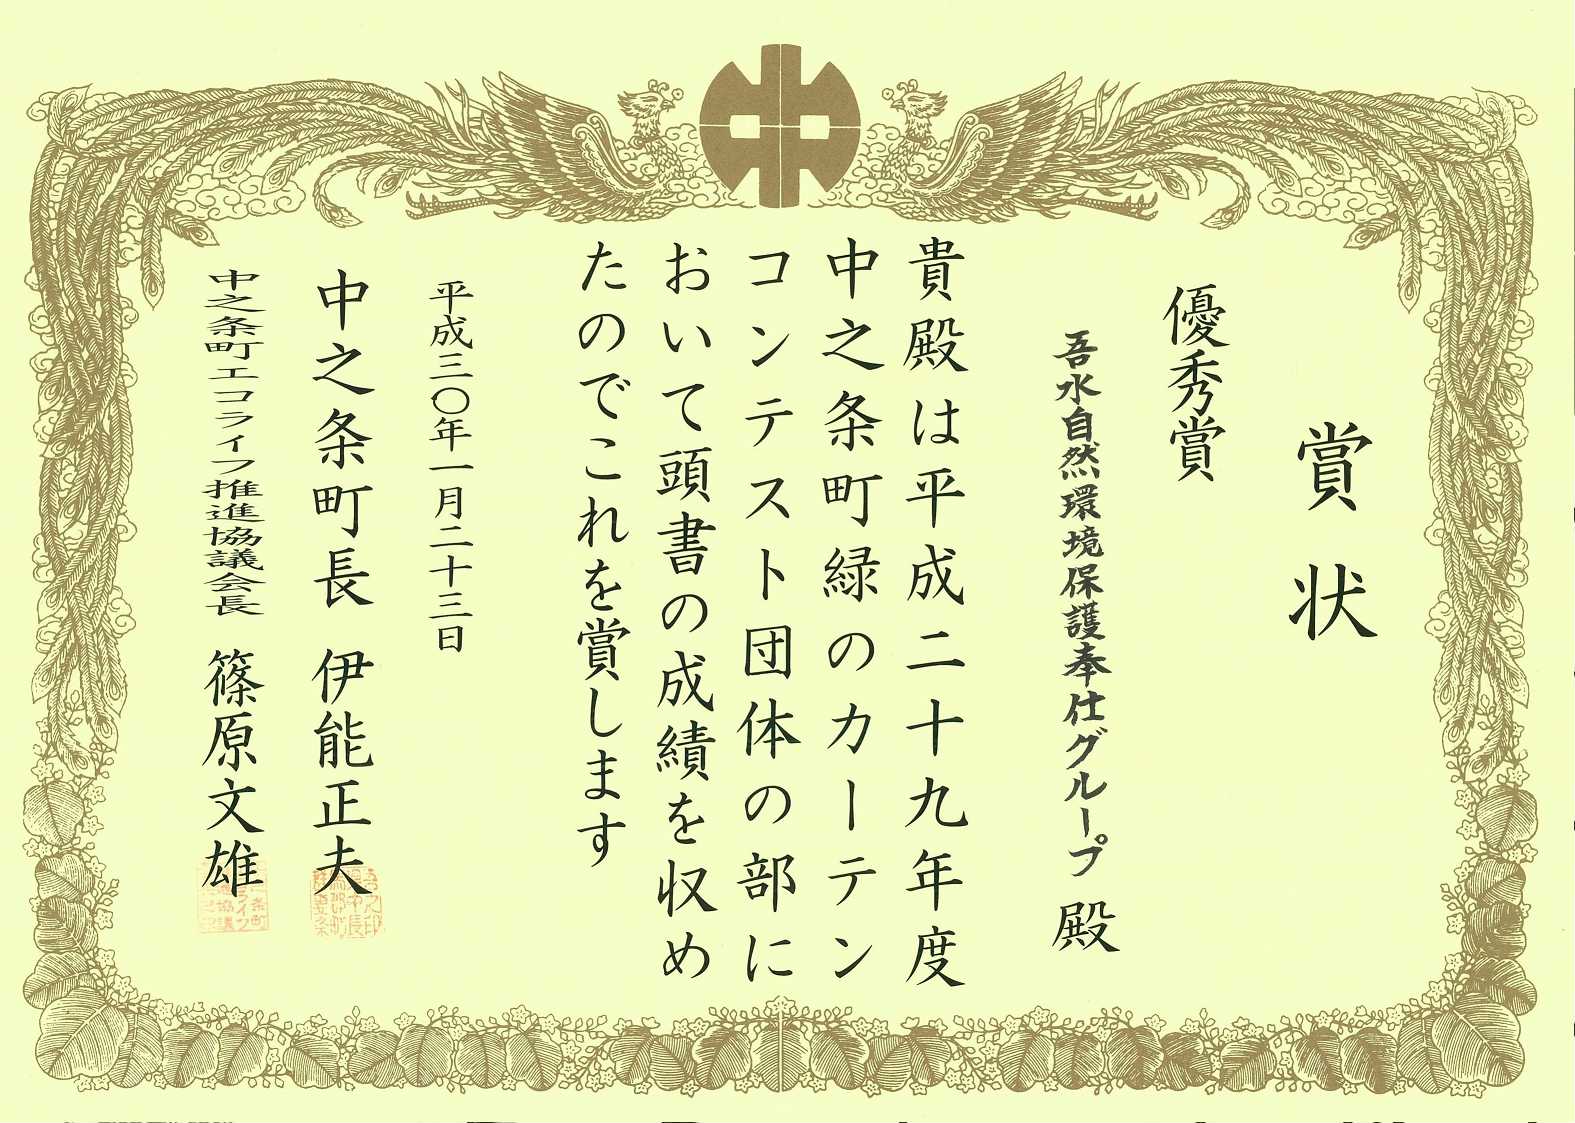 賞状
優秀賞
吾水自然環境保護奉仕グループ 殿
貴殿は平成二十九年度
中之条町緑のカーテン
コンテスト団体の部に
おいて頭書の成績を収め
たのでこれを賞します
平成三〇年一月二十三日
中之条町長 伊能正夫
中之条町エコライフ推進協議会長 篠原文雄